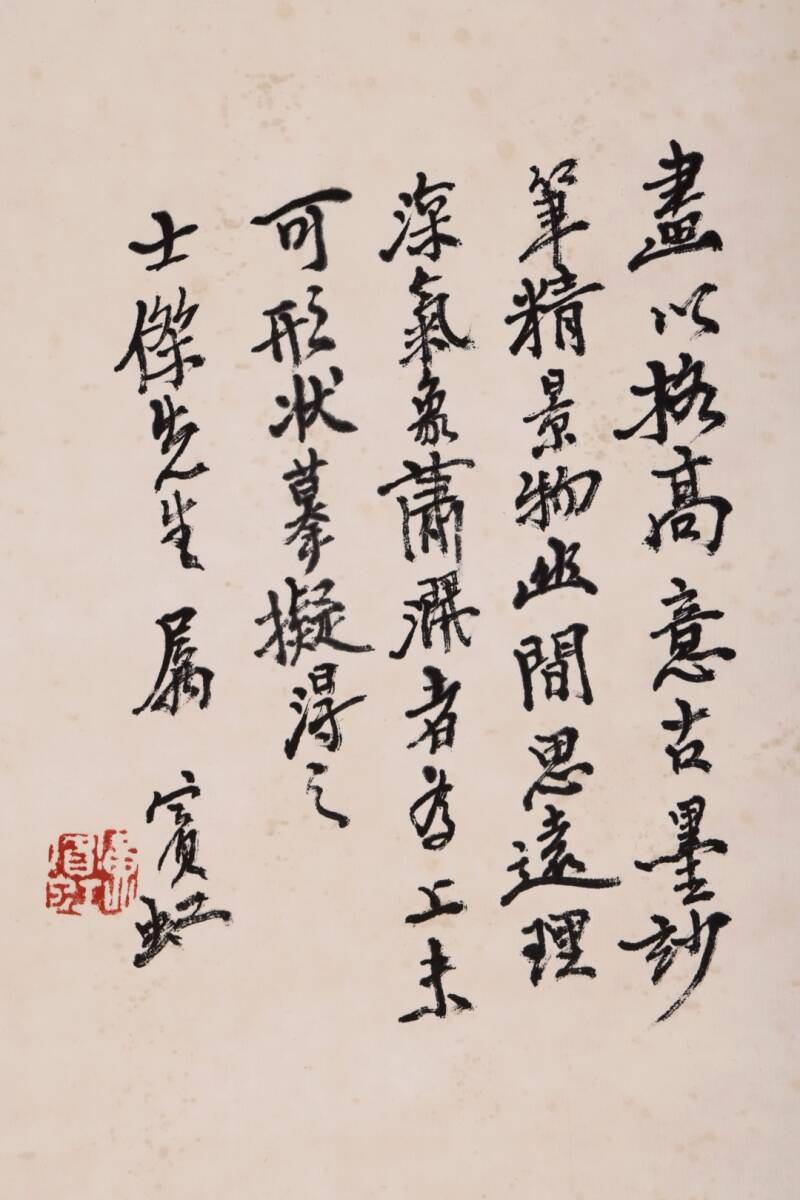 畫以格高意古墨玅
筆精景物幽間思遠理
深氣象蕭灑者為上未
可形狀摹擬得之
士傑先生屬 賓虹